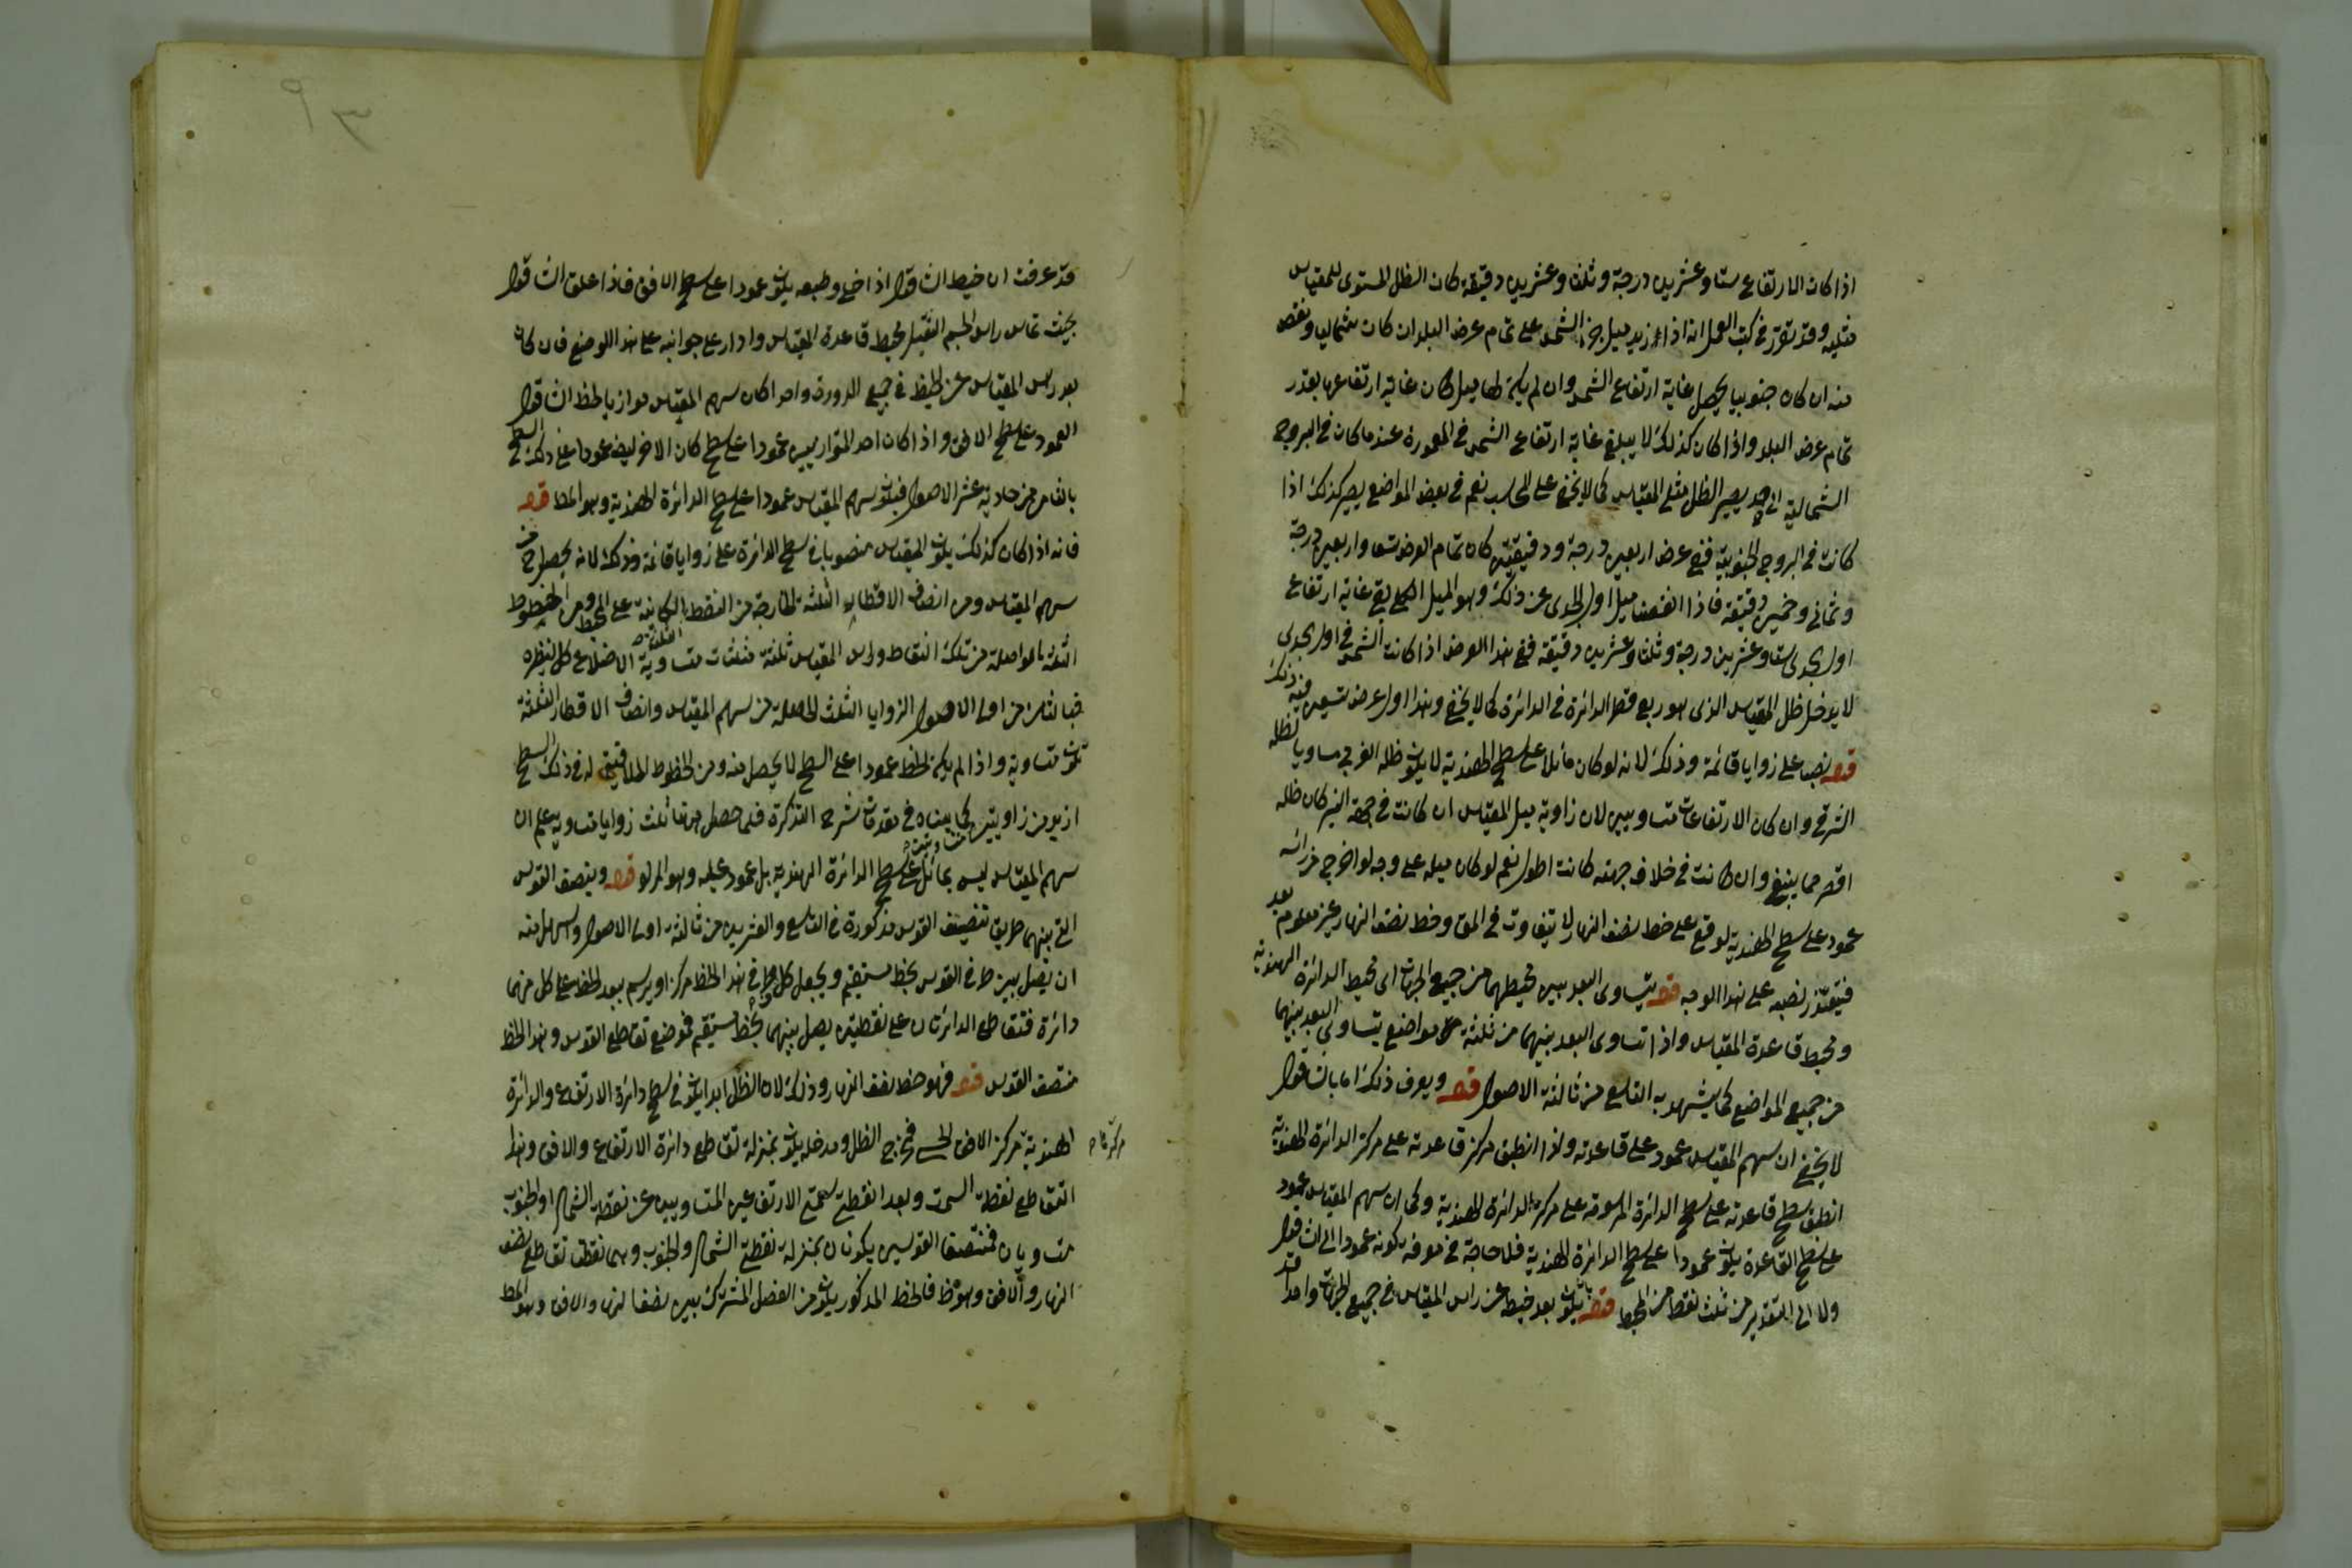 اذا كان الارتفاع ستا وعشرين درجة وثلثا وعشرين دقيقة كان الظل المستوى للمقياس
مثليه وقد تقرر فى كتب العمل انه اذا زيد ميل جزء الشمس على تمام عرض البلد ان كان شماليا ونقص
منه ان كان جنوبيا يحصل غاية ارتفاع الشمس وان لم يكن لها ميل كان غاية ارتفاعها بقدر
تمام عرض البلد واذا كان كذلك لا يبلغ غاية ارتفاع الشمس فى المعمورة عندما كان فى البروج
الشمالية الى حد يصير الظل مثلى المقياس كما لا يخفى على المحاسب نعم فى بعض المواضع يصير كذلك اذا
كانت فى البروج الجنوبية ففى عرض اربعين درجة ودقيقتين كان تمام العرض تسعا واربعين درجة
وثمانى وخمسين دقيقة فاذا انقصنا ميل اول الجدى عن ذلك وهو الميل الكلى بقى غاية ارتفاع
اول الجدى ستا وعشرين درجة وثلثا وعشرين دقيقة ففى هذا العرض اذا كانت الشمس فى اول الجدى
لا يدخل ظل المقياس الذى هو ربع قطر الدائرة فى الدائرة كما لا يخفى وهذا اول عرض يتيسر فيه ذلك
قوله نصبا على زوايا قائمة وذلك لانه لو كان مائلا على سطح الهندية لا يكون ظله الغربى مساويا لظله
الشرقى وان كان الارتفاعات متساويين لان زاوية ميل المقياس ان كانت فى جهة النير كان ظله
اقصر مما ينبغى وان كانت فى خلاف جهته كانت اطول نعم لو كان ميله على وجه لو اخرج من راسه
عمود على سطح الهندية لوقع على خط نصف النهار لا يتفاوت فى المق وخط نصف النهار غير معلوم بعد
فيتعذر نصبه على هذا الوجه قوله يتساوى البعد بين محيطهما من جميع الجهات اى محيط الدائرة الهندية
ومحيط قاعدة المقياس واذا تساوى البعد بينهما من ثلثة مواضع يتساوى البعد بينهما
من جميع المواضع كما يشهد به التاسع من ثالثة الاصول قوله ويعرف ذلك اما بالشاقول
لا يخفى ان سهم المقياس عمود على قاعدته واذا انطبق مركز قاعدته على مركز الدائرة الهندية
انطبق سطح قاعدته على سطح الدائرة المرسومة على مركز الدائرة الهندية وكما ان سهم المقياس عمود
على سطح القاعدة يكون عمودا على سطح الدائرة الهندية فلا حاجة فى معرفة كونه عمودا الى الشاقول
ولا الى التقدير من ثلث نقط من المحيط قوله بان يكون بعد خيطه عن راس المقياس فى جميع الجهات واحدا قد
قد عرفت ان خيط الشاقول اذا خلى وطبعه يكون عمودا على سطح الافق فاذا علق الشاقول
بحيث تماس راس الجسم الثقيل محيط قاعدة المقياس وادار على جوانبه على هذا الوضع فان كان
بعد راس المقياس عن الخيط فى جميع الدورة واحدا كان سهم المقياس موازيا لخط الشاقول
العمود على سطح الافق واذا كان احد المتوازيين عمودا على سطح كان الاخر ايضا عمودا على ذلك السطح
بالثامن من حادية عشر الاصول فيكون سهم المقياس عمودا على سطح الدائرة الهندية وهو المط قوله
فانه اذا كان كذلك يكون المقياس منصوبا فى سطح الدائرة على زوايا قائمة وذلك لانه يحصل ح من
سهم المقياس ومن انصاف الاقطار الثلثة الخارجة من النقط الكائنة على المحيط ومن الخطوط
الثلثة الواصلة من تلك النقاط وراس المقياس ثلثة مثلثات متساوية الاضلاع كل لنظيره
فبالثامن من اولى الاصول الزوايا الثلث الحاصلة من سهم المقياس وانصاف الاقطار الثلثة
تكون متساوية واذا لم يكن الخط عمودا على السطح لا يحصل منه ومن الخطوط الملاقية له فى ذلك السطح
ازيد من زاويتين متساويتين كما بيناه فى مقدمات شرح التذكرة فلما حصل ههنا ثلث زوايا متساوية علم ان
سهم المقياس ليس بمائل على سطح الدائرة الهندية بل عمود عليه وهو المراد قوله وينصف القوس
التى بينهما طريق تنصيف القوس مذكورة فى التاسع والعشرين من ثالثة اولى الاصول واسهل منه
ان يصل بين طرفى القوس بخط مستقيم ويجعل كل طرفى هذا الخط مركزا ويرسم ببعد الخط على كل منهما
دائرة فتقاطع الدائرتان على نقطتين يصل بينهما بخط مستقيم فموضع تقاطع القوس وهذا الخط
منتصف القوس قوله فهو خط نصف النهار وذلك لان الظل ابدا يكون فى سطح دائرة الارتفاع والدائرة
الهندية مركز الافق الحسى فمخرج الظل ومدخله يكون بمنزلة تقاطع دائرة الارتفاع والافق وهذا
التقاطع نقطة السمت وبعد نقطتى سمتى الارتفاعين المتساويين عن نقطة الشمال او الجنوب
متساويان فمنتصفا القوسين يكونان بمنزلة نقطتى الشمال والجنوب وهما نقطتا تقاطع نصف
النهار والافق وهو ظ فالخط المذكور يكون من الفصل المشترك بين نصف النهار والافق وهو المط